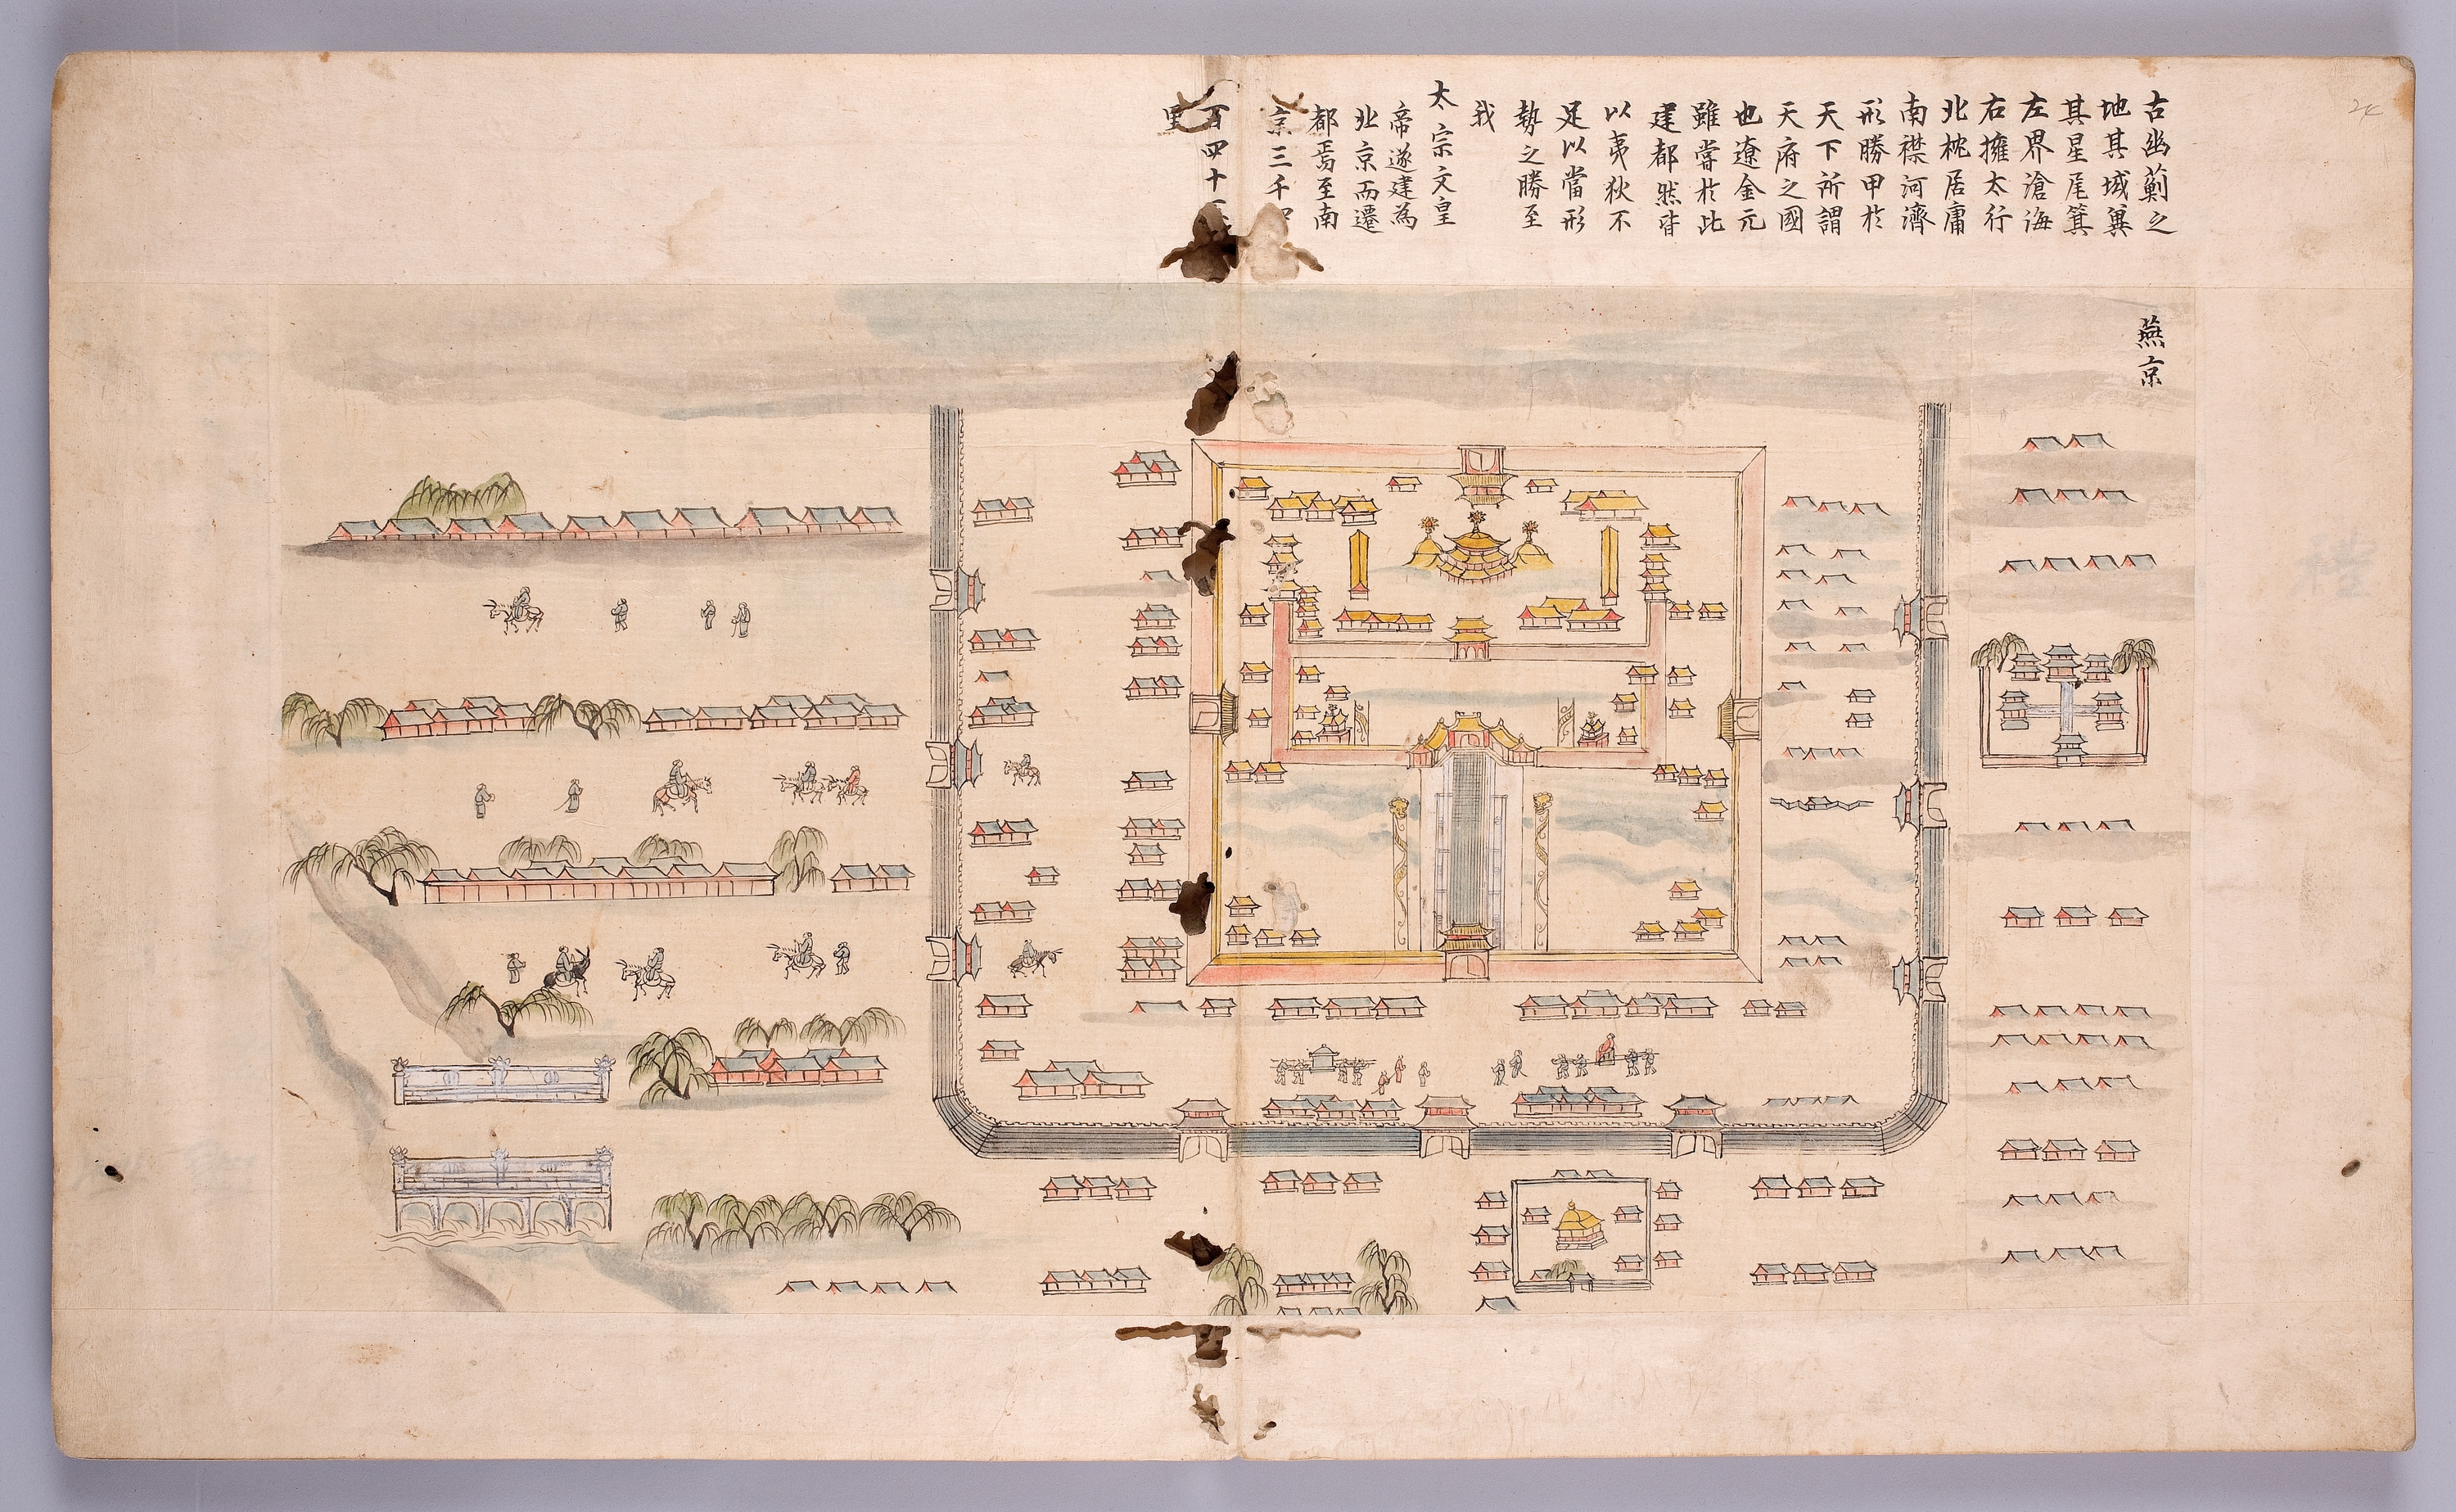 古幽薊之
地其域冀
其星尾箕
左界滄海
右擁太行
北枕居庸
南襟河濟
形勝甲於
天下所謂
天府之國
也遼金元
雖嘗於此
建都然皆
以夷狄不
足以當形
勢之勝至
我
太宗文皇
帝遂建為
北京而遷
都焉至南
京三千四
百四十
里
燕京